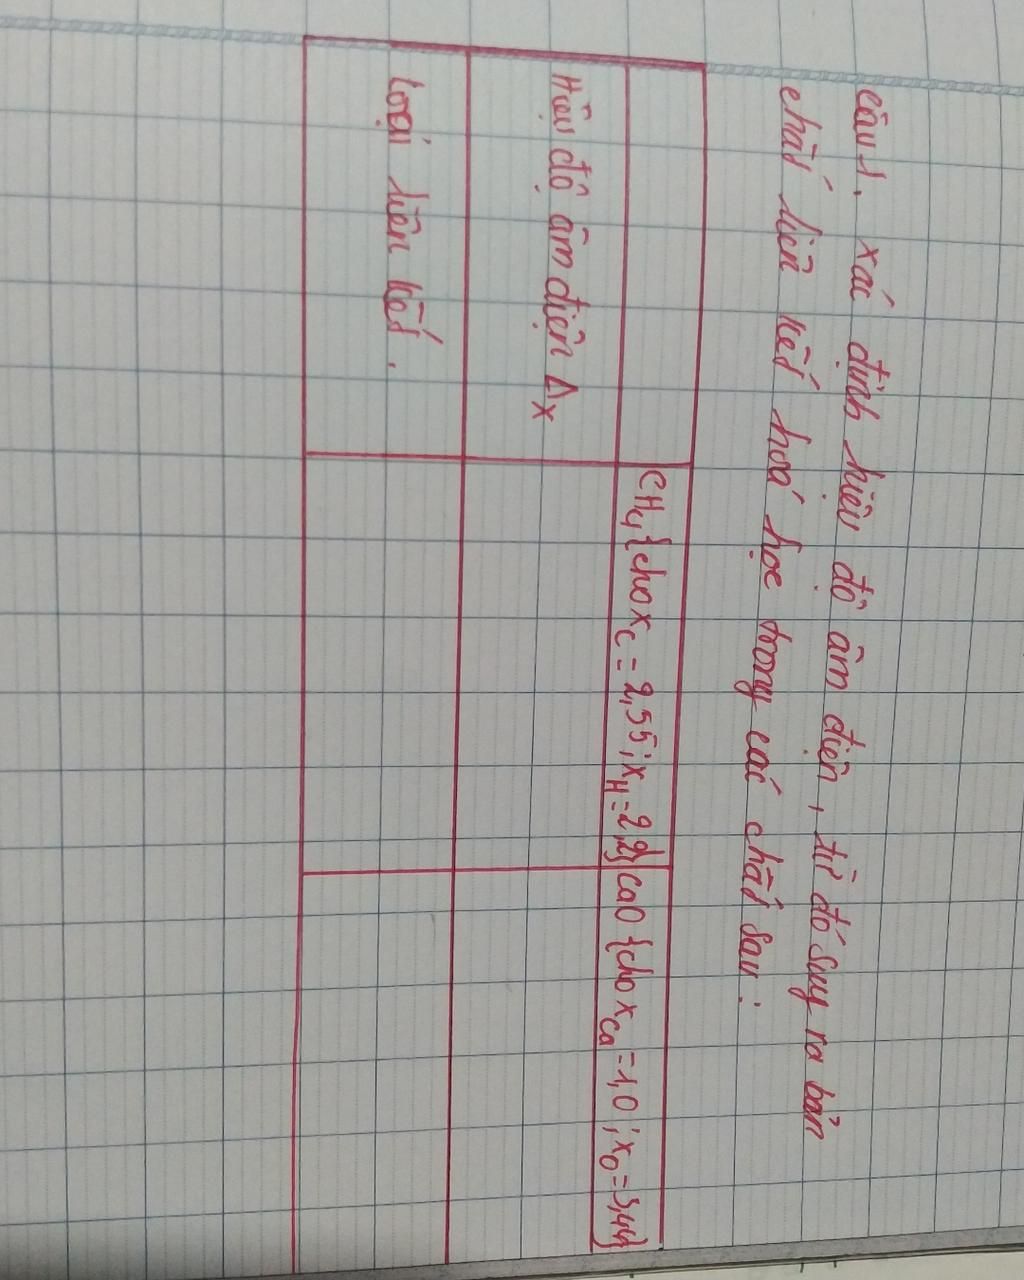 Câu 1. xác định hiệu độ âm điện, từ đó suy ra bản
chất liên kết hoá học trong các chất sau:
CH₄ {cho x_C = 2,55; x_H = 2,2} CaO {cho x_Ca = 1,0; x_O = 3,44}
Hiệu độ âm điện Δx
Loại liên kết.